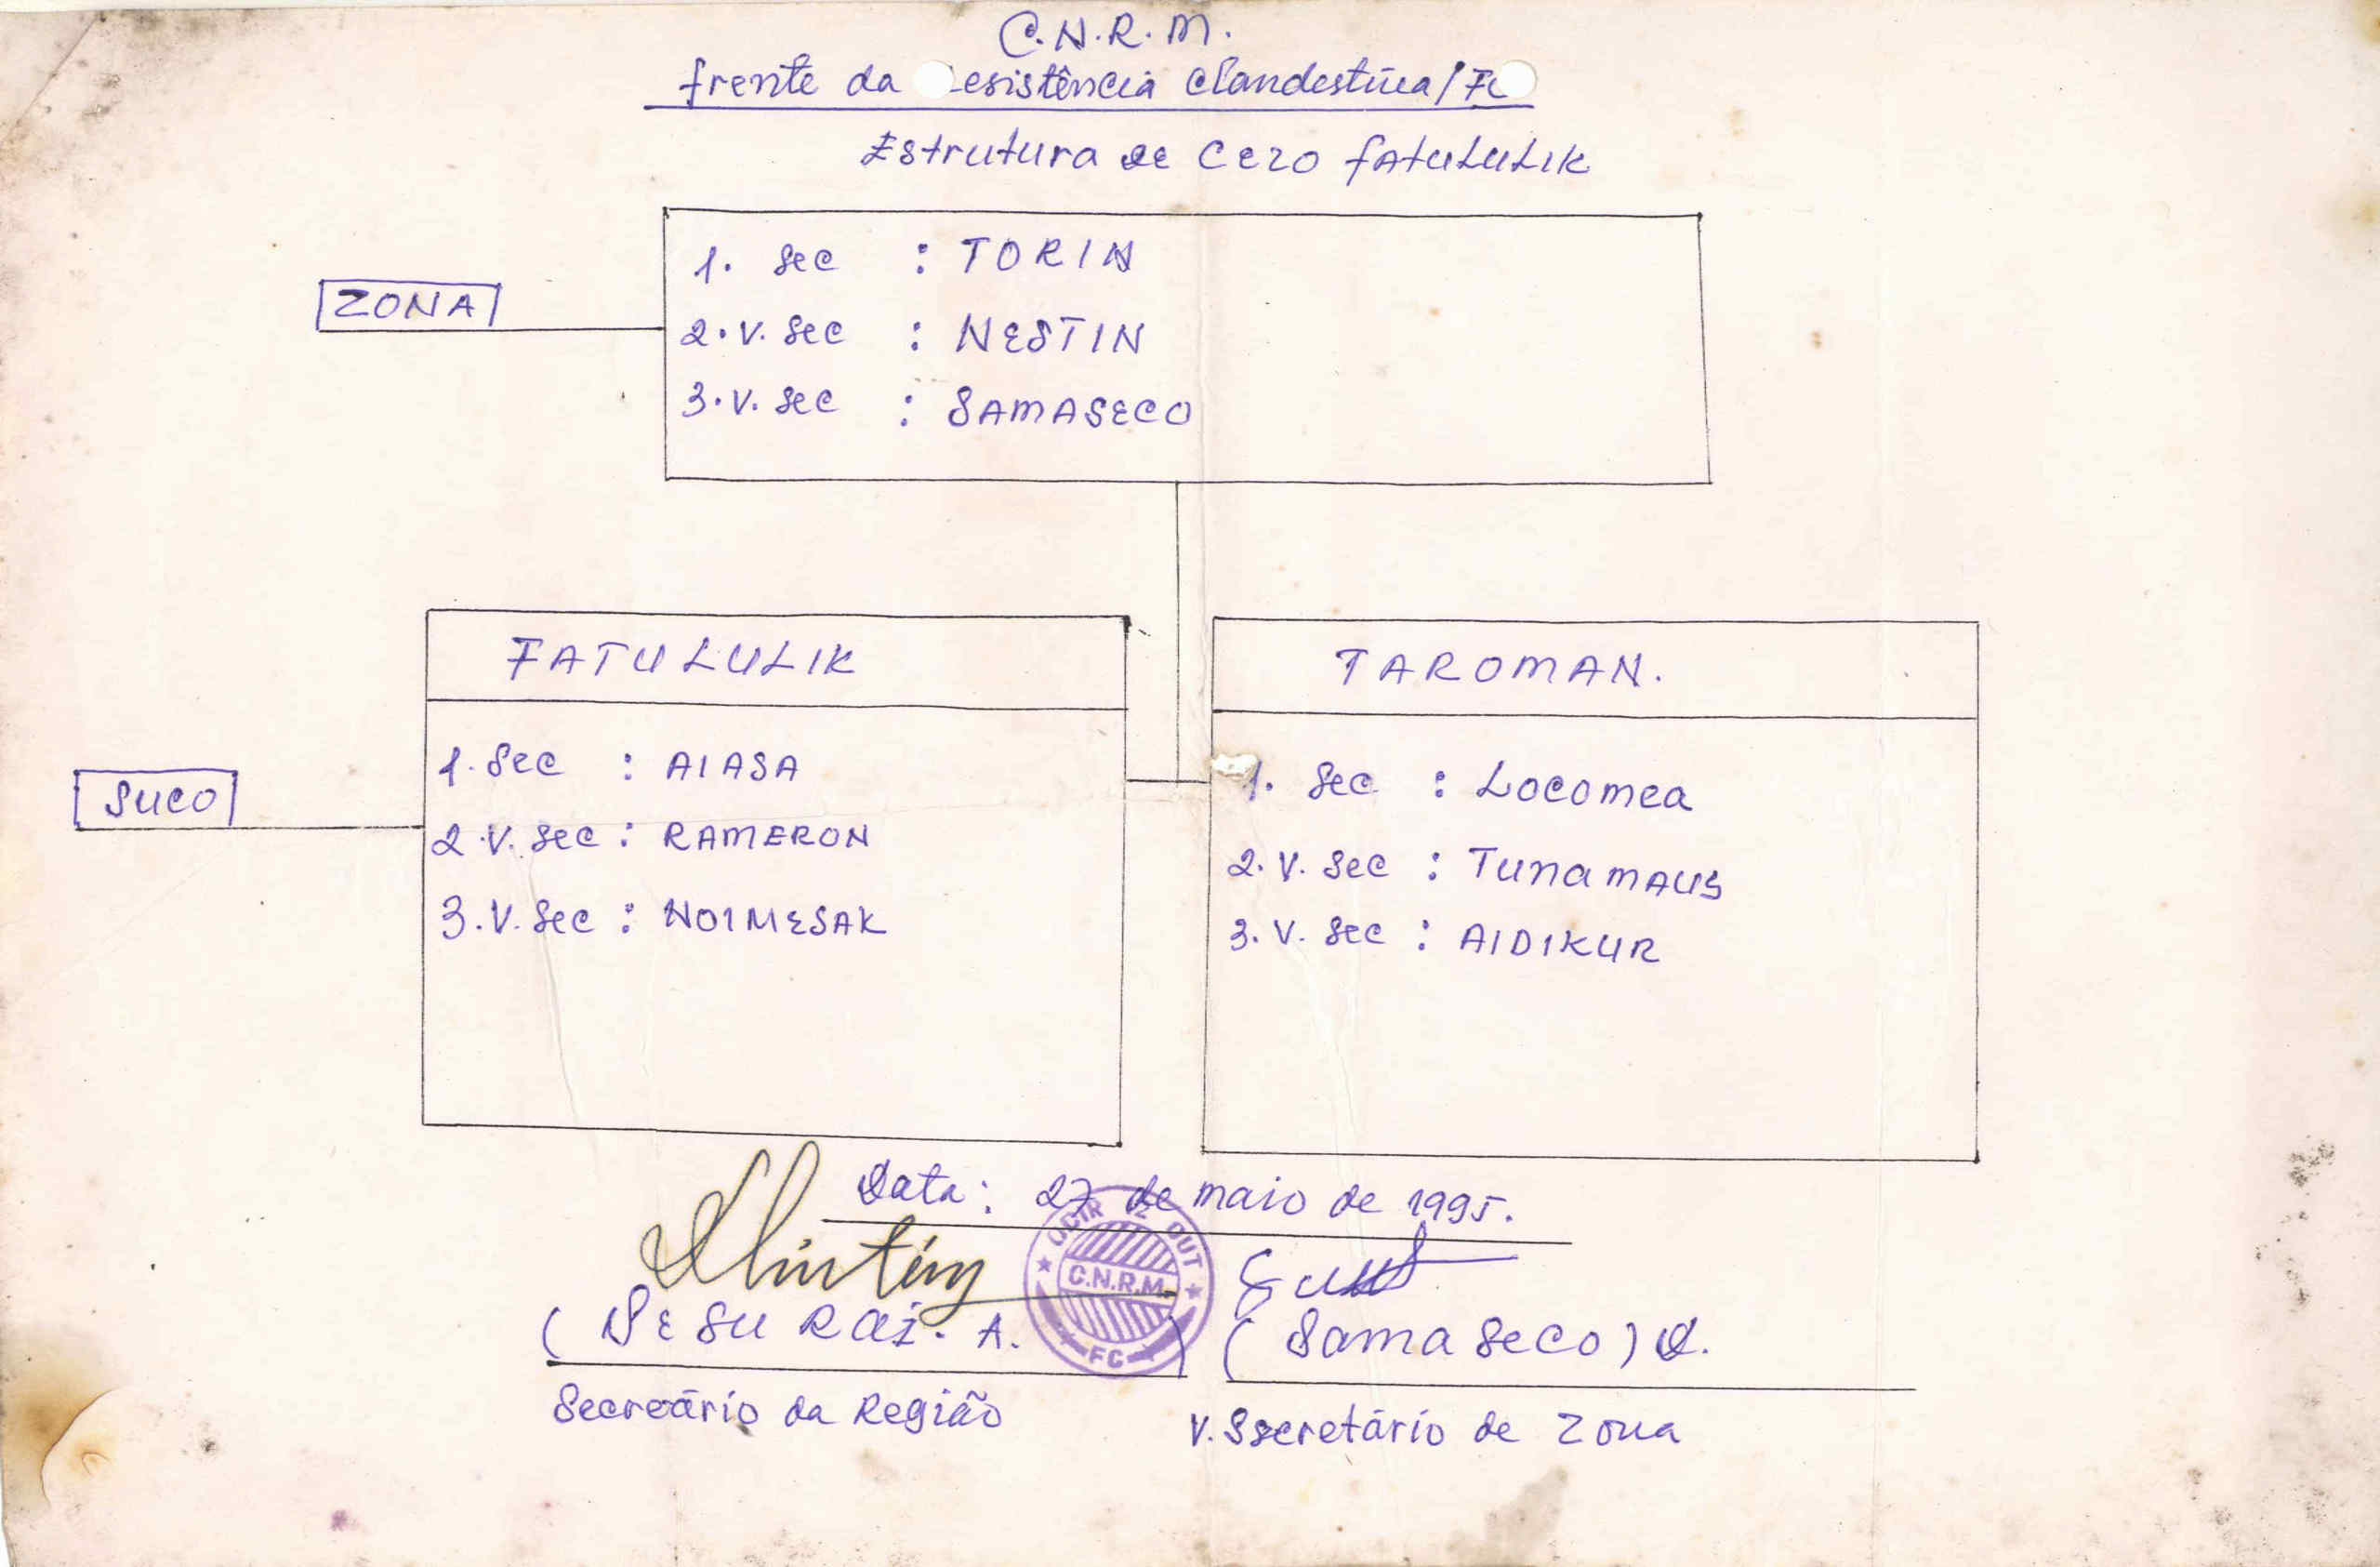 C.N.R.M.
frente da esistência Clandestina/FC
Estrutura de Cezo FATULULIK
ZONA
1. Sec : TORIN
2. V. Sec : NESTIN
3. V. Sec : SAMASECO
FATULULIK
TAROMAN.
SUCO
1. Sec : AIASA
2. V. Sec : RAMERON
3. V. Sec : NOIMESAK
1. Sec : Locomea
2. V. Sec : TunamAUS
3. V. Sec : AIDIKUR
Data: 27 de maio de 1995.
C.N.R.M.
FC
(SESU RAI. A. )
(Samaseco) D.
Secreário da Região
V. Ssecretário de Zona